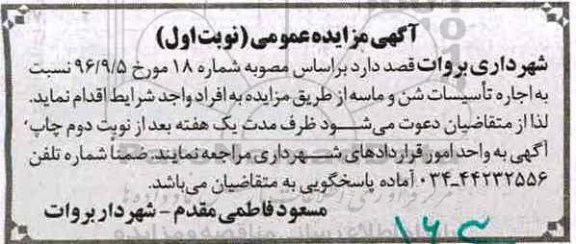 آگهی مزایده عمومی (نوبت اول)
شهرداری بروات قصد دارد براساس مصوبه شماره ۱۸ مورخ ۹۶/۹/۵ نسبت
به اجاره تأسیسات شن و ماسه از طریق مزایده به افراد واجد شرایط اقدام نماید.
لذا از متقاضیان دعوت می‌شود ظرف مدت یک هفته بعد از نوبت دوم چاپ
آگهی به واحد امور قراردادهای شهرداری مراجعه نمایند. ضمنا شماره تلفن
۴۴۲۳۲۵۵۶-۰۳۴ آماده پاسخگویی به متقاضیان می‌باشد.
مسعود فاطمی مقدم - شهردار بروات